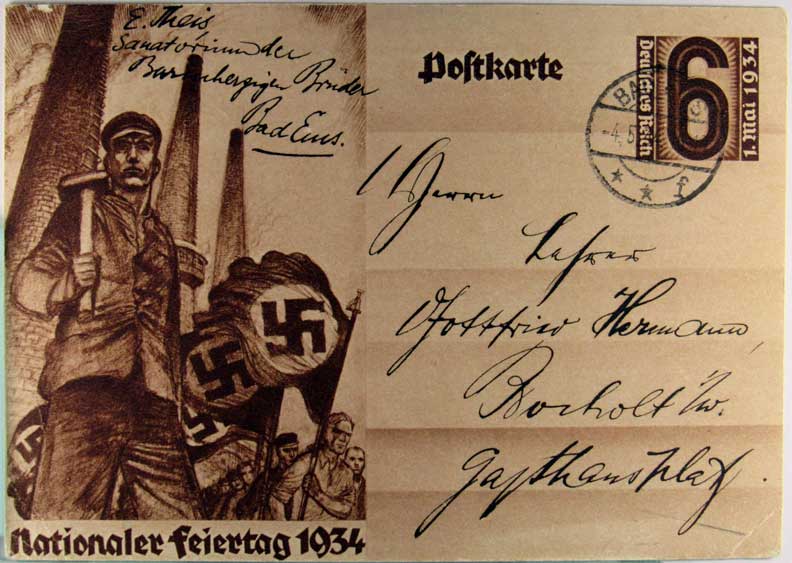 E. Theis
Sanatorium der
Barmherzigen Brüder
Bad Ems.
Postkarte
Deutsches Reich
6
1. Mai 1934
BA
-4. 5
* * f
Herrn
Lehrer
Gottfried Hermann,
Bocholt i/w.
Gasthausplatz.
Nationaler Feiertag 1934